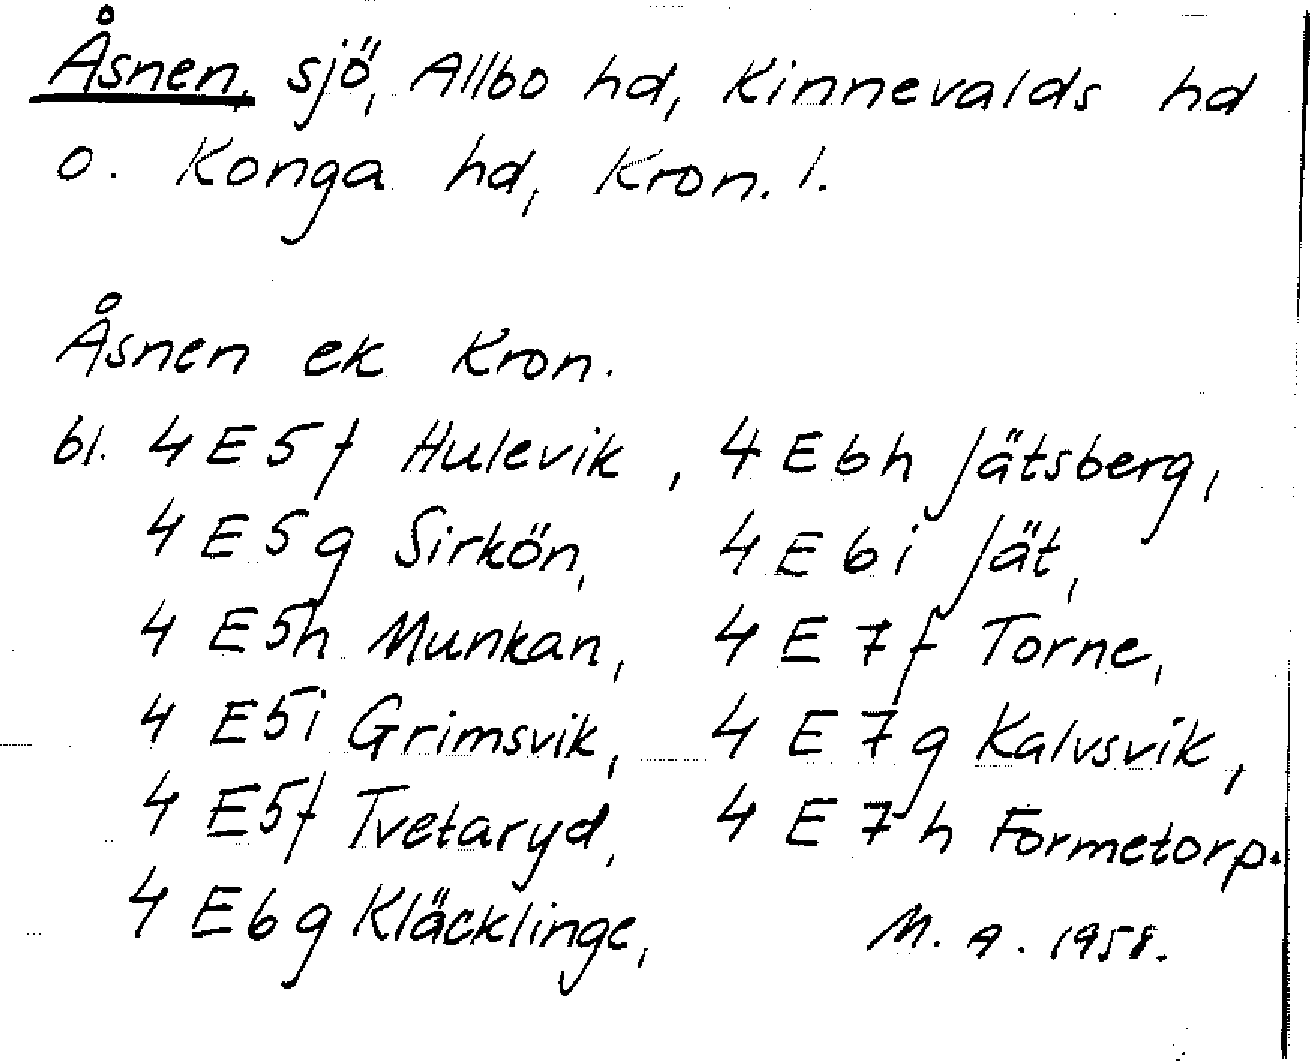 Åsnen, sjö, Allbo hd, Kinnevalds hd
o. Konga hd, Kron. l.
Åsnen ek Kron.
bl. 4 E 5 f Hulevik, 4 E 6 h Jätsberg,
4 E 5 g Sirkön, 4 E 6 i Jät,
4 E 5 h Munkan, 4 E 7 f Torne,
4 E 5 i Grimsvik, 4 E 7 g Kalvsvik,
4 E 5 f Tvetaryd, 4 E 7 h Formetorp.
4 E 6 g Kläcklinge,
M. A. 1958.